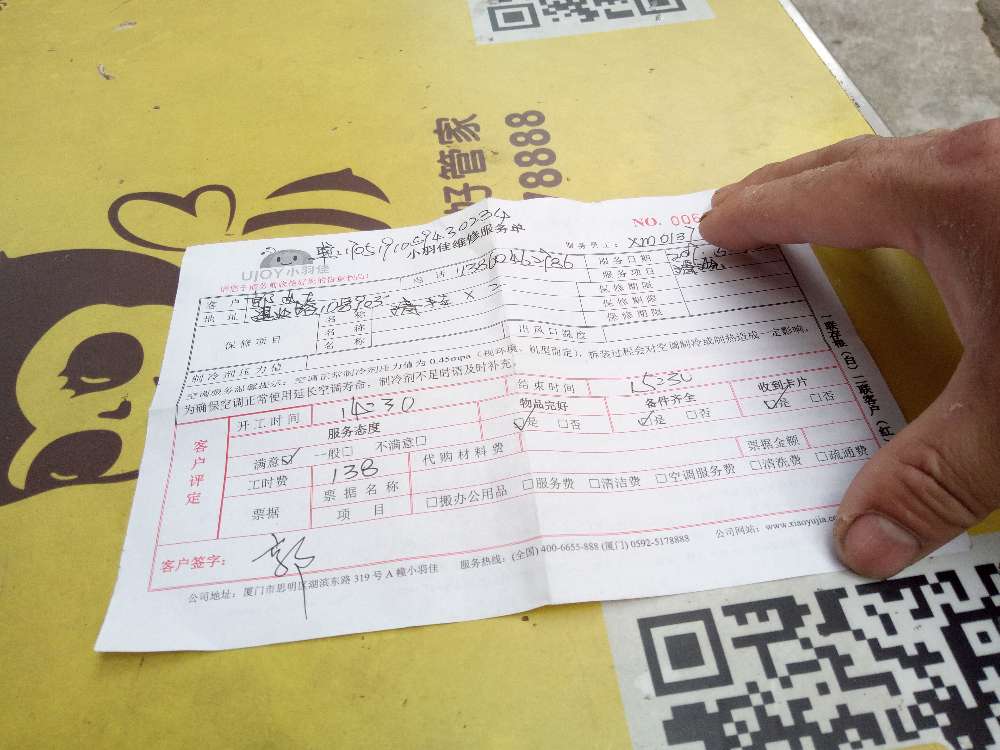 好管家
78888
NO. 006
UJOY小羽佳
小羽佳维修服务单
服务员工: XM0137
客户
电话
服务日期
地址
服务项目
保修项目
名称
保修期限
名称
保修期限
名称
保修期限
制冷剂压力值
出风口温度
空调服务温馨提示: 空调正常制冷剂压力值为 0.45mpa (视环境、机型而定), 拆装过程会对空调制冷或制热造成一定影响,
为确保空调正常使用延长空调寿命, 制冷剂不足时请及时补充。
客户评定
开工时间 14:30
结束时间 15:30
服务态度
物品完好
备件齐全
收到卡片
满意☑ 一般□ 不满意□
☑是 □否
☑是 □否
☑是 □否
工时费 138
代购材料费
票据
票据名称
票据金额
项目
□搬办公用品 □服务费 □清洁费 □空调服务费 □清洗费 □疏通费
客户签字: 郭
公司地址: 厦门市思明区湖滨东路 319 号 A 幢小羽佳 服务热线: (全国) 400-6655-888 (厦门) 0592-5178888 公司网站: www.xiaoyujia.co
一联存根 (白) 二联客户 (红